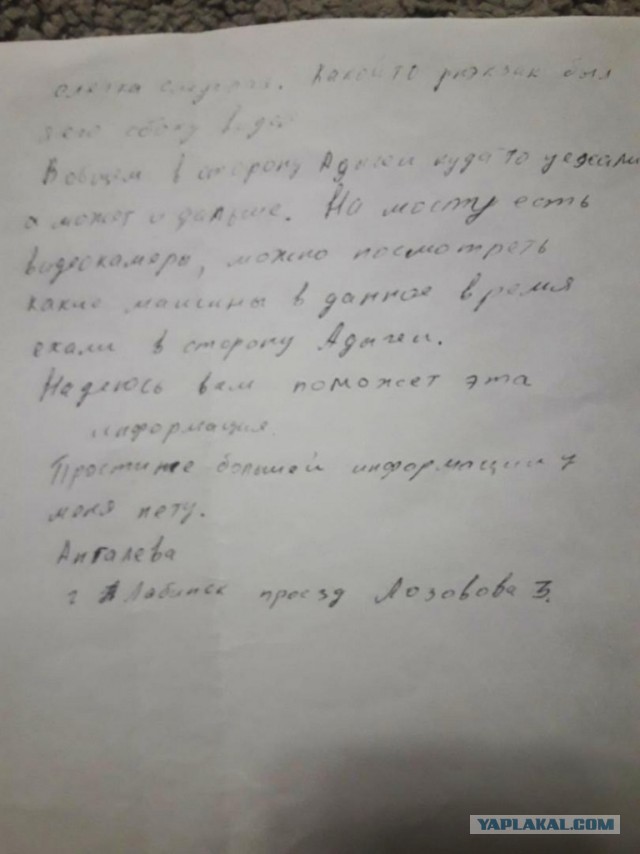 слегка смуглая. Какойто рюкзак был
сбоку видел
Вобщем в сторону Адыгеи куда то уехали
а может и дальше. На мосту есть
видеокамеры, можно посмотреть
какие машины в данное время
ехали в сторону Адыгеи.
Надеюсь вам поможет эта
информация.
Простите большей информации у
меня нету.
Ангалева
г Лабинск проезд Лозовова 3.
YAPLAKAL.COM